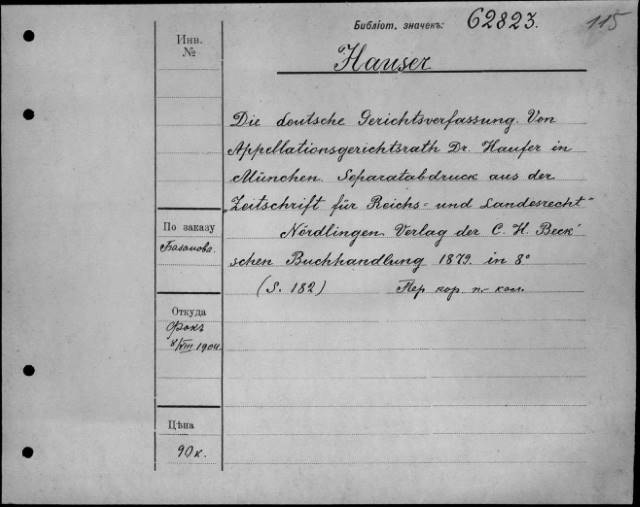 Библіот. значекъ: 62823. 115
Инв.
№
Hauser
Die deutsche Gerichtsverfassung. Von
Appellationsgerichtsrath Dr. Haufer in
München. Separatabdruck aus der
„Zeitschrift für Reichs- und Landesrecht"
Nördlingen. Verlag der C. H. Beck'
schen Buchhandlung 1879. in 8°
(S. 182) Пер кор. п.- кол.
По заказу
Базанова.
Откуда
Фокъ
1904.
Цѣна
90 к.